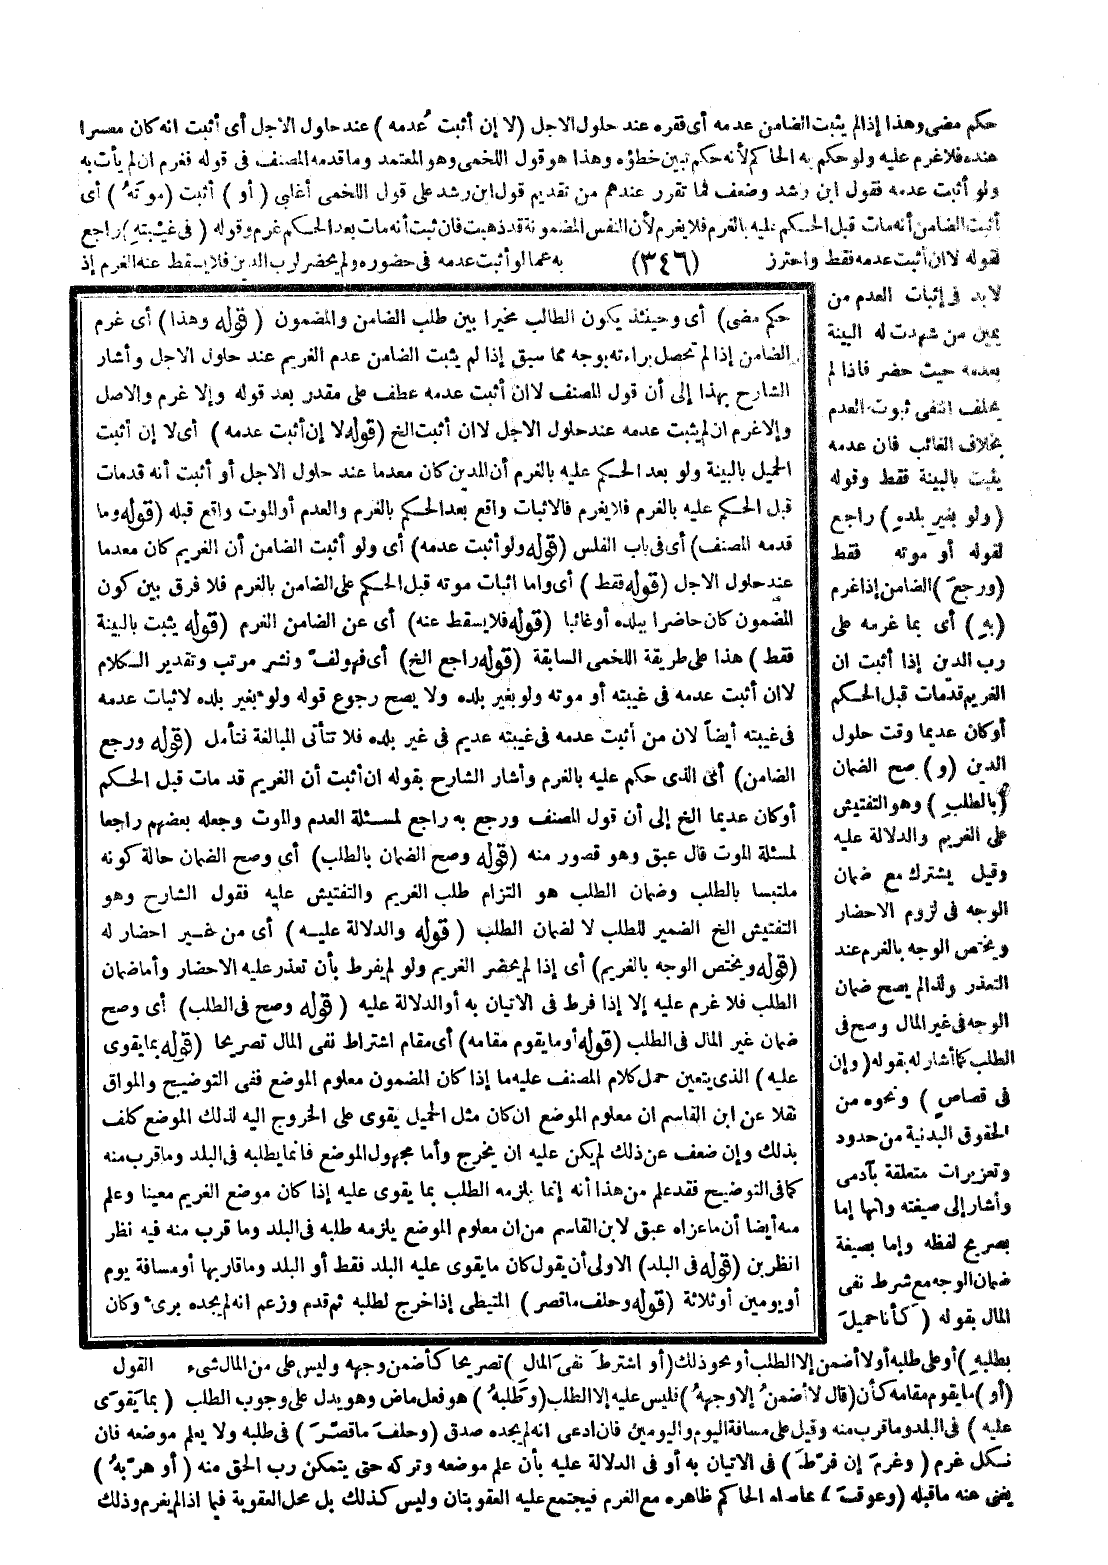 حكم مضى وهذا إذا لم يثبت الضامن عدمه أى فقره عند حلول الاجل (لا إن أثبت عُدمه) عند حلول الاجل أى أثبت انه كان معسرا
عنده فلا غرم عليه ولو حكم به الحاكم لأنه حكم تبين خطؤه وهذا هو قول اللخمى وهو المعتمد وما قدمه المصنف فى قوله فغرم ان لم يأت به
ولو أثبت عدمه فقول ابن رشد وضعف فما تقرر عندهم من تقديم قول ابن رشد على قول اللخمى أغلبى (أو) أثبت (موتهُ) أى
أثبت الضامن أنه مات قبل الحكم عليه بالغرم فلا يغرم لأن النفس المضمونة قد ذهبت فان ثبت أنه مات بعد الحكم غرم وقوله (فى غيبتهِ) راجع
لقوله لا ان أثبت عدمه فقط واحترز (٣٤٦) به عما لو أثبت عدمه فى حضوره ولم يحضر لرب الدين فلا يسقط عنه الغرم إذ
لابد فى إثبات العدم من
يمين من شهدت له البينة
بعدمه حيث حضر فاذا لم
يحلف انتفى ثبوت العدم
بخلاف الغائب فان عدمه
يثبت بالبينة فقط وقوله
(ولو بغيرِ بلدهِ) راجع
لقوله أو موته فقط
(ورجعَ) الضامن إذا غرم
(بهِ) أى بما غرمه على
رب الدين إذا أثبت ان
الغريم قد مات قبل الحكم
أو كان عديما وقت حلول
الدين (و) صح الضمان
(بالطلبِ) وهو التفتيش
على الغريم والدلالة عليه
وقيل يشترك مع ضمان
الوجه فى لزوم الاحضار
ويختص الوجه بالغرم عند
التعذر ولذا لم يصح ضمان
الوجه فى غير المال وصح فى
الطلب كما أشار له بقوله (وإن
فى قصاصٍ) ونحوه من
الحقوق البدنية من حدود
وتعزيرات متعلقة بآدمى
وأشار إلى صيغته وانها إما
بصريح لفظه وإما بصيغة
ضمان الوجه مع شرط نفى
المال بقوله (كأنا حميلٌ
حكم مضى) أى وحينئذ يكون الطالب مخيرا بين طلب الضامن والمضمون (قوله وهذا) أى غرم
الضامن إذا لم تحصل براءته بوجه مما سبق إذا لم يثبت الضامن عدم الغريم عند حلول الاجل وأشار
الشارح بهذا إلى أن قول المصنف لا ان أثبت عدمه عطف على مقدر بعد قوله وإلا غرم والاصل
وإلا غرم ان لم يثبت عدمه عند حلول الاجل لا ان أثبت الخ (قوله لا إن أثبت عدمه) أى لا إن أثبت
الحميل بالبينة ولو بعد الحكم عليه بالغرم أن المدين كان معدما عند حلول الاجل أو أثبت أنه قد مات
قبل الحكم عليه بالغرم فلا يغرم فالاثبات واقع بعد الحكم بالغرم والعدم أو الموت واقع قبله (قوله وما
قدمه المصنف) أى فى باب الفلس (قوله ولو أثبت عدمه) أى ولو أثبت الضامن أن الغريم كان معدما
عند حلول الاجل (قوله فقط) أى واما اثبات موته قبل الحكم على الضامن بالغرم فلا فرق بين كون
المضمون كان حاضرا ببلده أو غائبا (قوله فلا يسقط عنه) أى عن الضامن الغرم (قوله يثبت بالبينة
فقط) هذا على طريقة اللخمى السابقة (قوله راجع الخ) أى فهو لف ونشر مرتب وتقدير الكلام
لا ان أثبت عدمه فى غيبته أو موته ولو بغير بلده ولا يصح رجوع قوله ولو بغير بلده لاثبات عدمه
فى غيبته أيضاً لان من أثبت عدمه فى غيبته عديم فى غير بلده فلا تتأتى المبالغة فتأمل (قوله ورجع
الضامن) أى الذى حكم عليه بالغرم وأشار الشارح بقوله ان أثبت أن الغريم قد مات قبل الحكم
أو كان عديما الخ إلى أن قول المصنف ورجع به راجع لمسئلة العدم والموت وجعله بعضهم راجعا
لمسئلة الموت قال عبق وهو قصور منه (قوله وصح الضمان بالطلب) أى وصح الضمان حالة كونه
ملتبسا بالطلب وضمان الطلب هو التزام طلب الغريم والتفتيش عليه فقول الشارح وهو
التفتيش الخ الضمير للطلب لا لضمان الطلب (قوله والدلالة عليه) أى من غير احضار له
(قوله ويختص الوجه بالغريم) أى إذا لم يحضر الغريم ولو لم يفرط بأن تعذر عليه الاحضار وأما ضمان
الطلب فلا غرم عليه إلا إذا فرط فى الاتيان به أو الدلالة عليه (قوله وصح فى الطلب) أى وصح
ضمان غير المال فى الطلب (قوله أو ما يقوم مقامه) أى مقام اشتراط نفى المال تصريحا (قوله بما يقوى
عليه) الذى يتعين حمل كلام المصنف عليه ما إذا كان المضمون معلوم الموضع ففى التوضيح والمواق
نقلا عن ابن القاسم ان معلوم الموضع ان كان مثل الحميل يقوى على الخروج اليه لذلك الموضع كلف
بذلك وإن ضعف عن ذلك لم يكن عليه ان يخرج وأما مجهول الموضع فانما يطلبه فى البلد وما قرب منه
كما فى التوضيح فقد علم من هذا أنه إنما يلزمه الطلب بما يقوى عليه إذا كان موضع الغريم معينا وعلم
منه أيضا أن ما عزاه عبق لابن القاسم من ان معلوم الموضع يلزمه طلبه فى البلد وما قرب منه فيه نظر
انظر بن (قوله فى البلد) الاولى أن يقول كان ما يقوى عليه البلد فقط أو البلد وما قاربها أو مسافة يوم
أو يومين أو ثلاثة (قوله وحلف ما قصر) المتيطى إذا خرج لطلبه ثم قدم وزعم انه لم يجده برىء وكان
بطلبهِ) أو على طلبه أو لا أضمن إلا الطلب أو نحو ذلك (أو اشترطَ نفىَ المال) تصريحا كأضمن وجهه وليس على من المال شىء القول
(أو) ما يقوم مقامه كأن (قال لا أضمنُ إلا وجههُ) فليس عليه إلا الطلب (وطلبهُ) هو فعل ماض وهو يدل على وجوب الطلب (بما يقوَى
عليه) فى البلد وما قرب منه وقيل على مسافة اليوم واليومين فان ادعى انه لم يجده صدق (وحلفَ ما قصّرَ) فى طلبه ولا يعلم موضعه فان
نكل غرم (وغرمَ إن فرّطَ) فى الاتيان به أو فى الدلالة عليه بأن علم موضعه وتركه حتى يتمكن رب الحق منه (أو هرّبهُ)
يغنى عنه ما قبله (وعوقبَ) عامله الحاكم ظاهره مع الغرم فيجتمع عليه العقوبتان وليس كذلك بل محل العقوبة فيما اذا لم يغرم وذلك